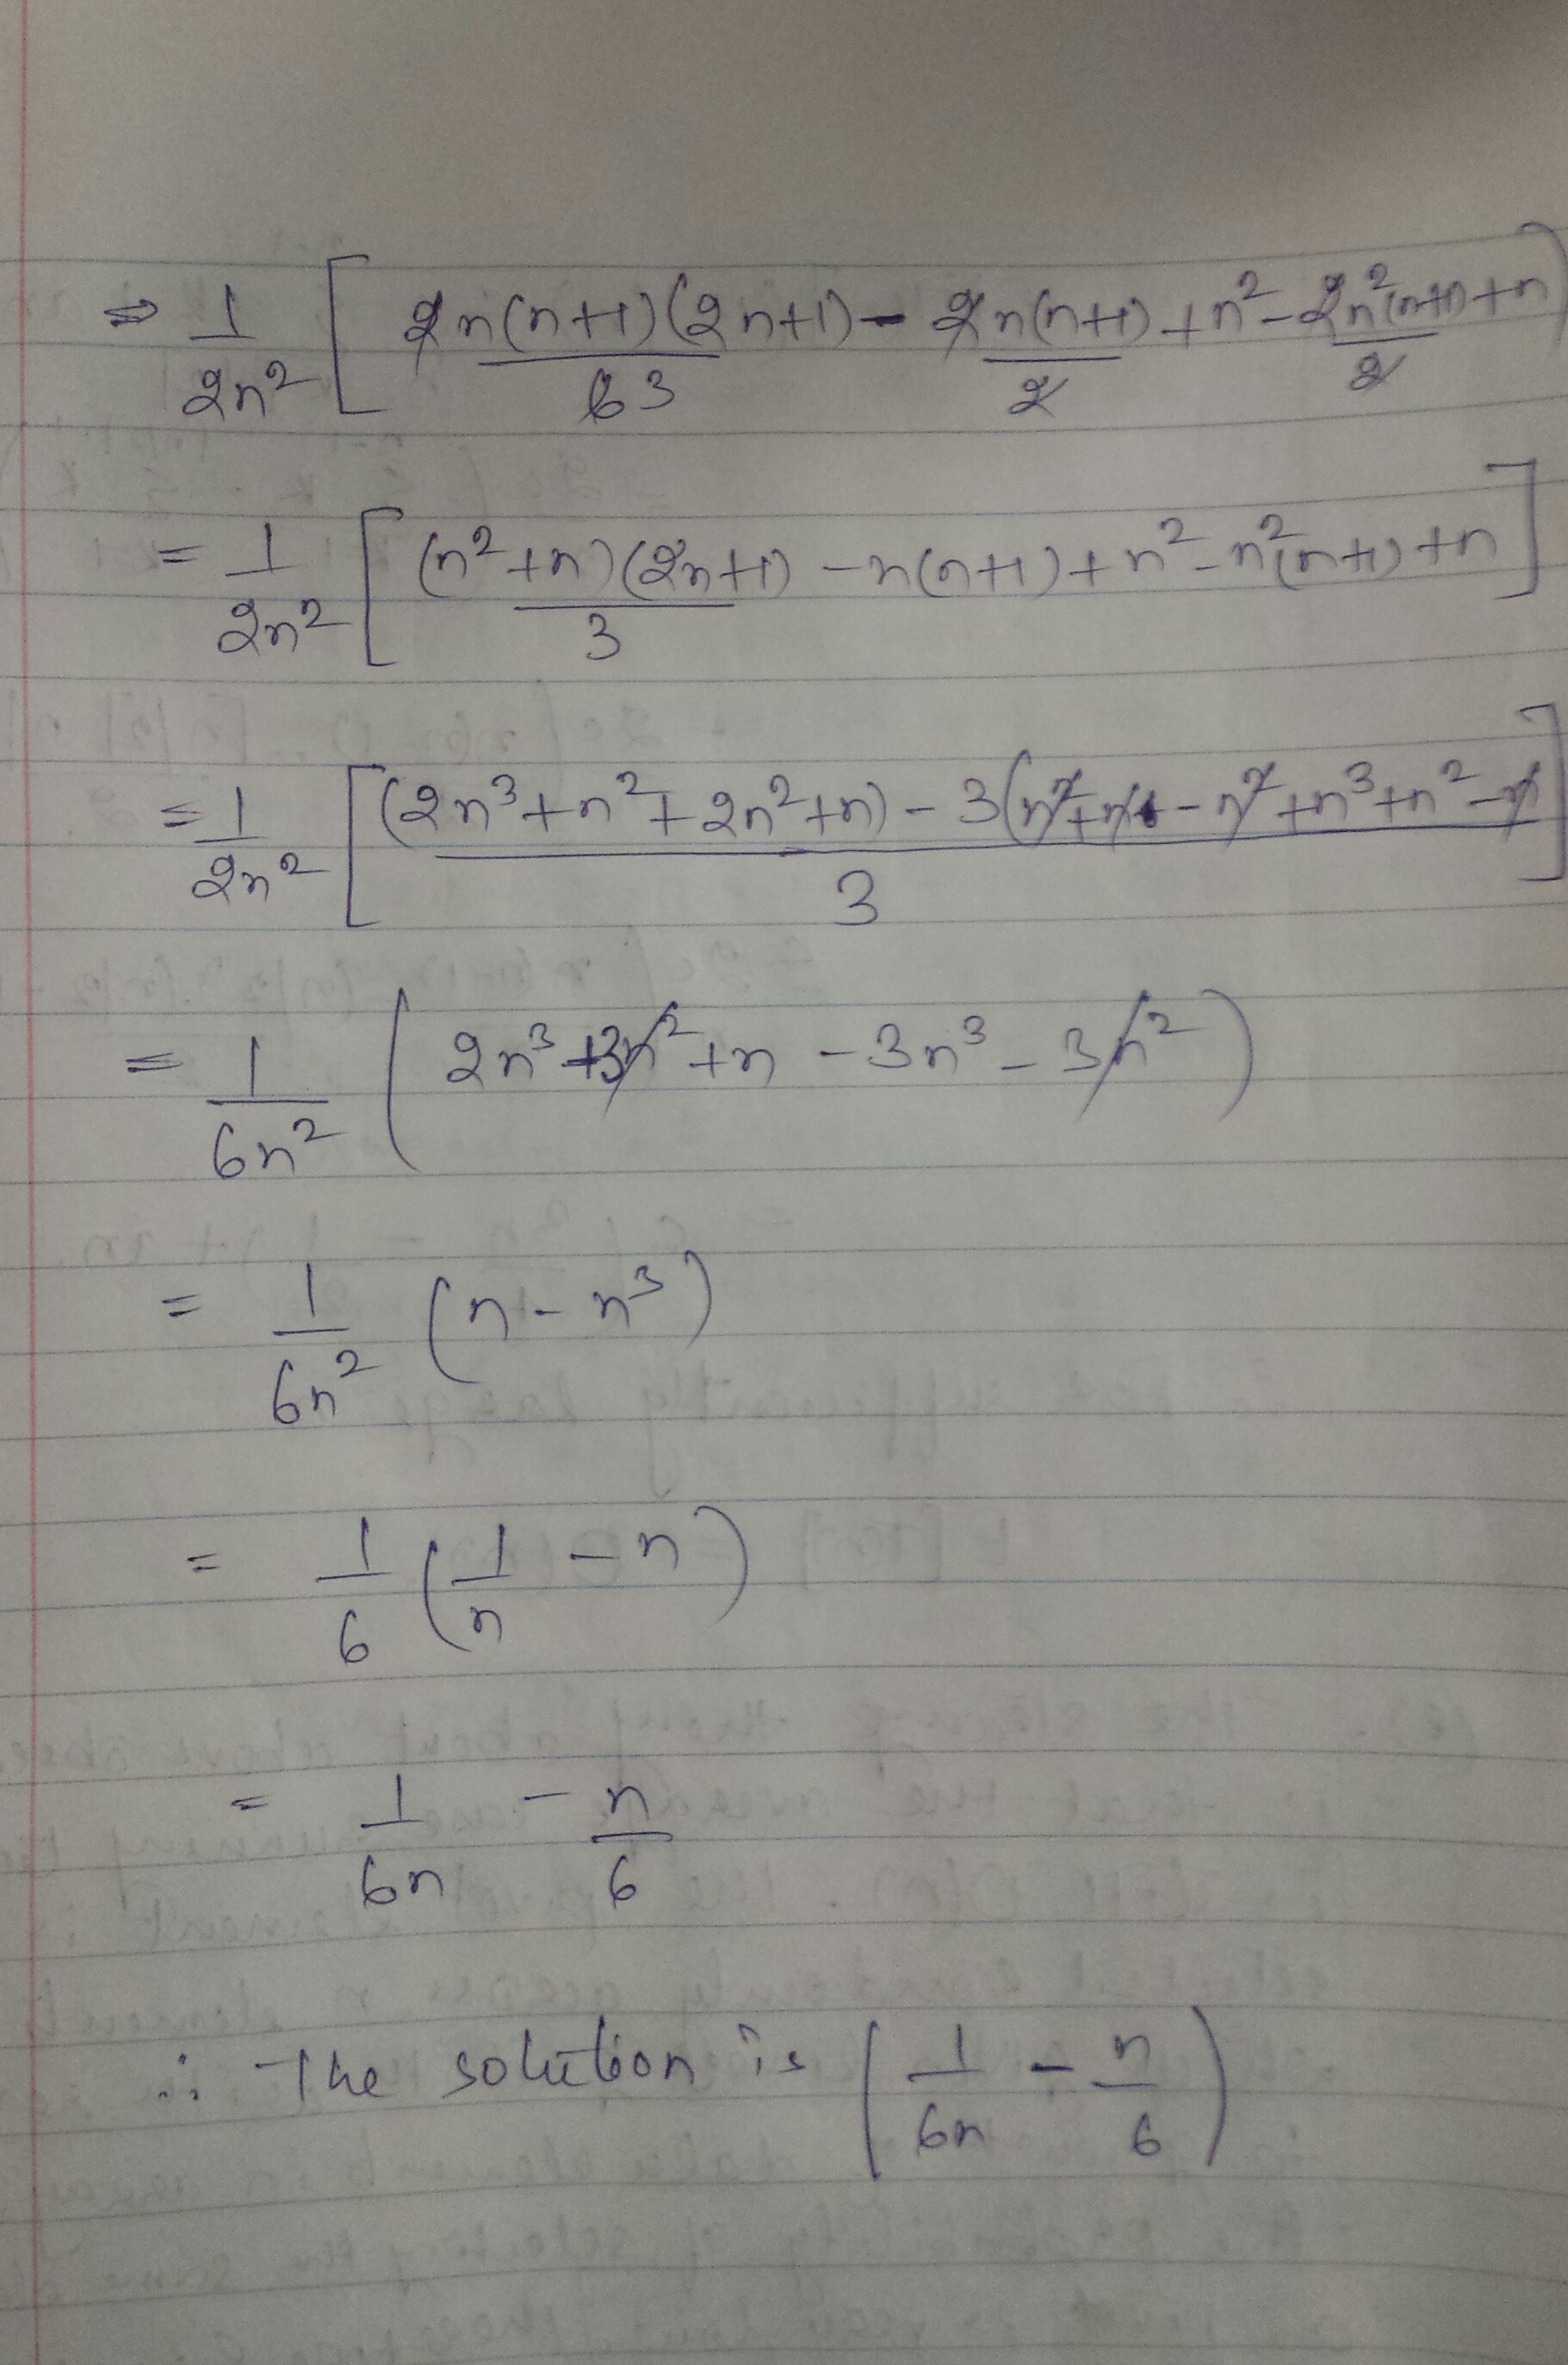 ⇒ 1/2n² [ 2n(n+1)(2n+1)/63 - 2n(n+1)/2 + n² - 2n²(n+1)/2 + n ]
= 1/2n² [ (n²+n)(2n+1)/3 - n(n+1) + n² - n²(n+1) + n ]
= 1/2n² [ (2n³+n²+2n²+n) - 3(n²+n - n² + n³+n² - n / 3 ]
= 1/6n² ( 2n³ + 3n² + n - 3n³ - 3n² )
= 1/6n² (n - n³)
= 1/6 (1/n - n)
= 1/6n - n/6
∴ The solution is (1/6n - n/6)